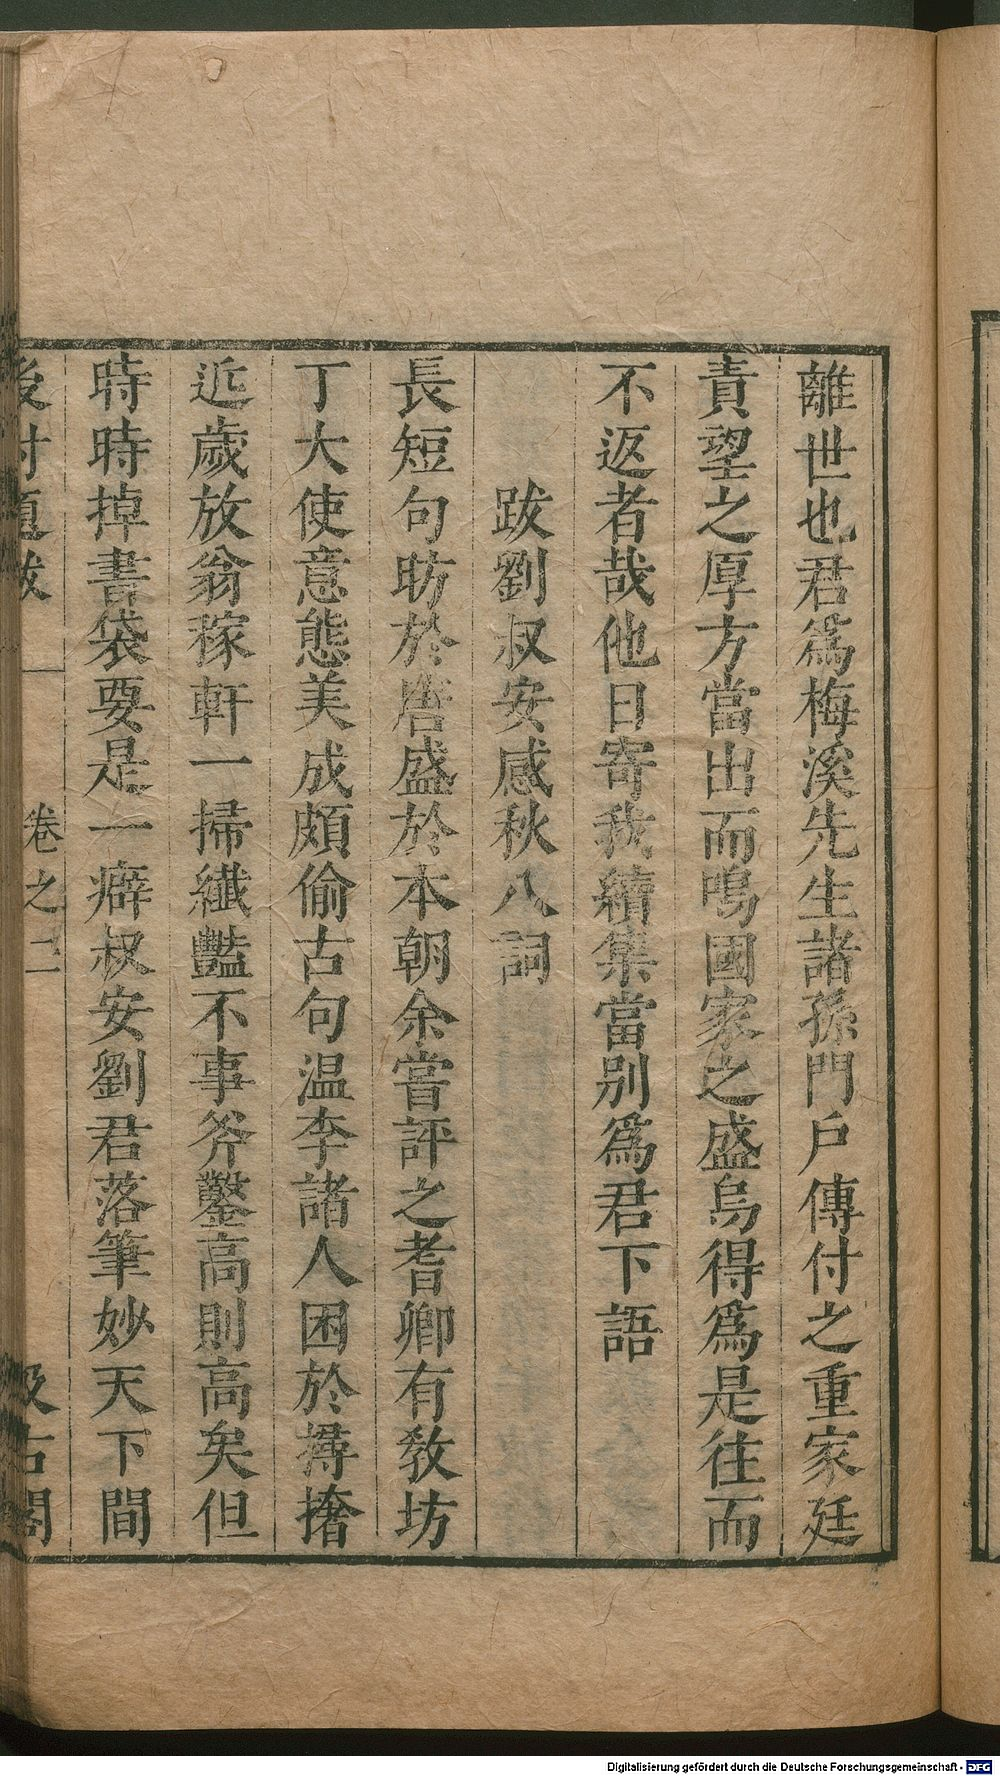 離世也君爲梅溪先生諸孫門戶傳付之重家廷
責望之厚方當出而鳴國家之盛烏得爲是往而
不返者哉他日寄我續集當別爲君下語
跋劉叔安感秋八詞
長短句昉於唐盛於本朝余嘗評之耆卿有敎坊
丁大使意態美成頗偷古句温李諸人困於撏撦
近歲放翁稼軒一掃纖豔不事斧鑿高則高矣但
時時掉書袋要是一癖叔安劉君落筆妙天下間
後村題跋 卷之二 汲古閣
Digitalisierung gefördert durch die Deutsche Forschungsgemeinschaft - DFG